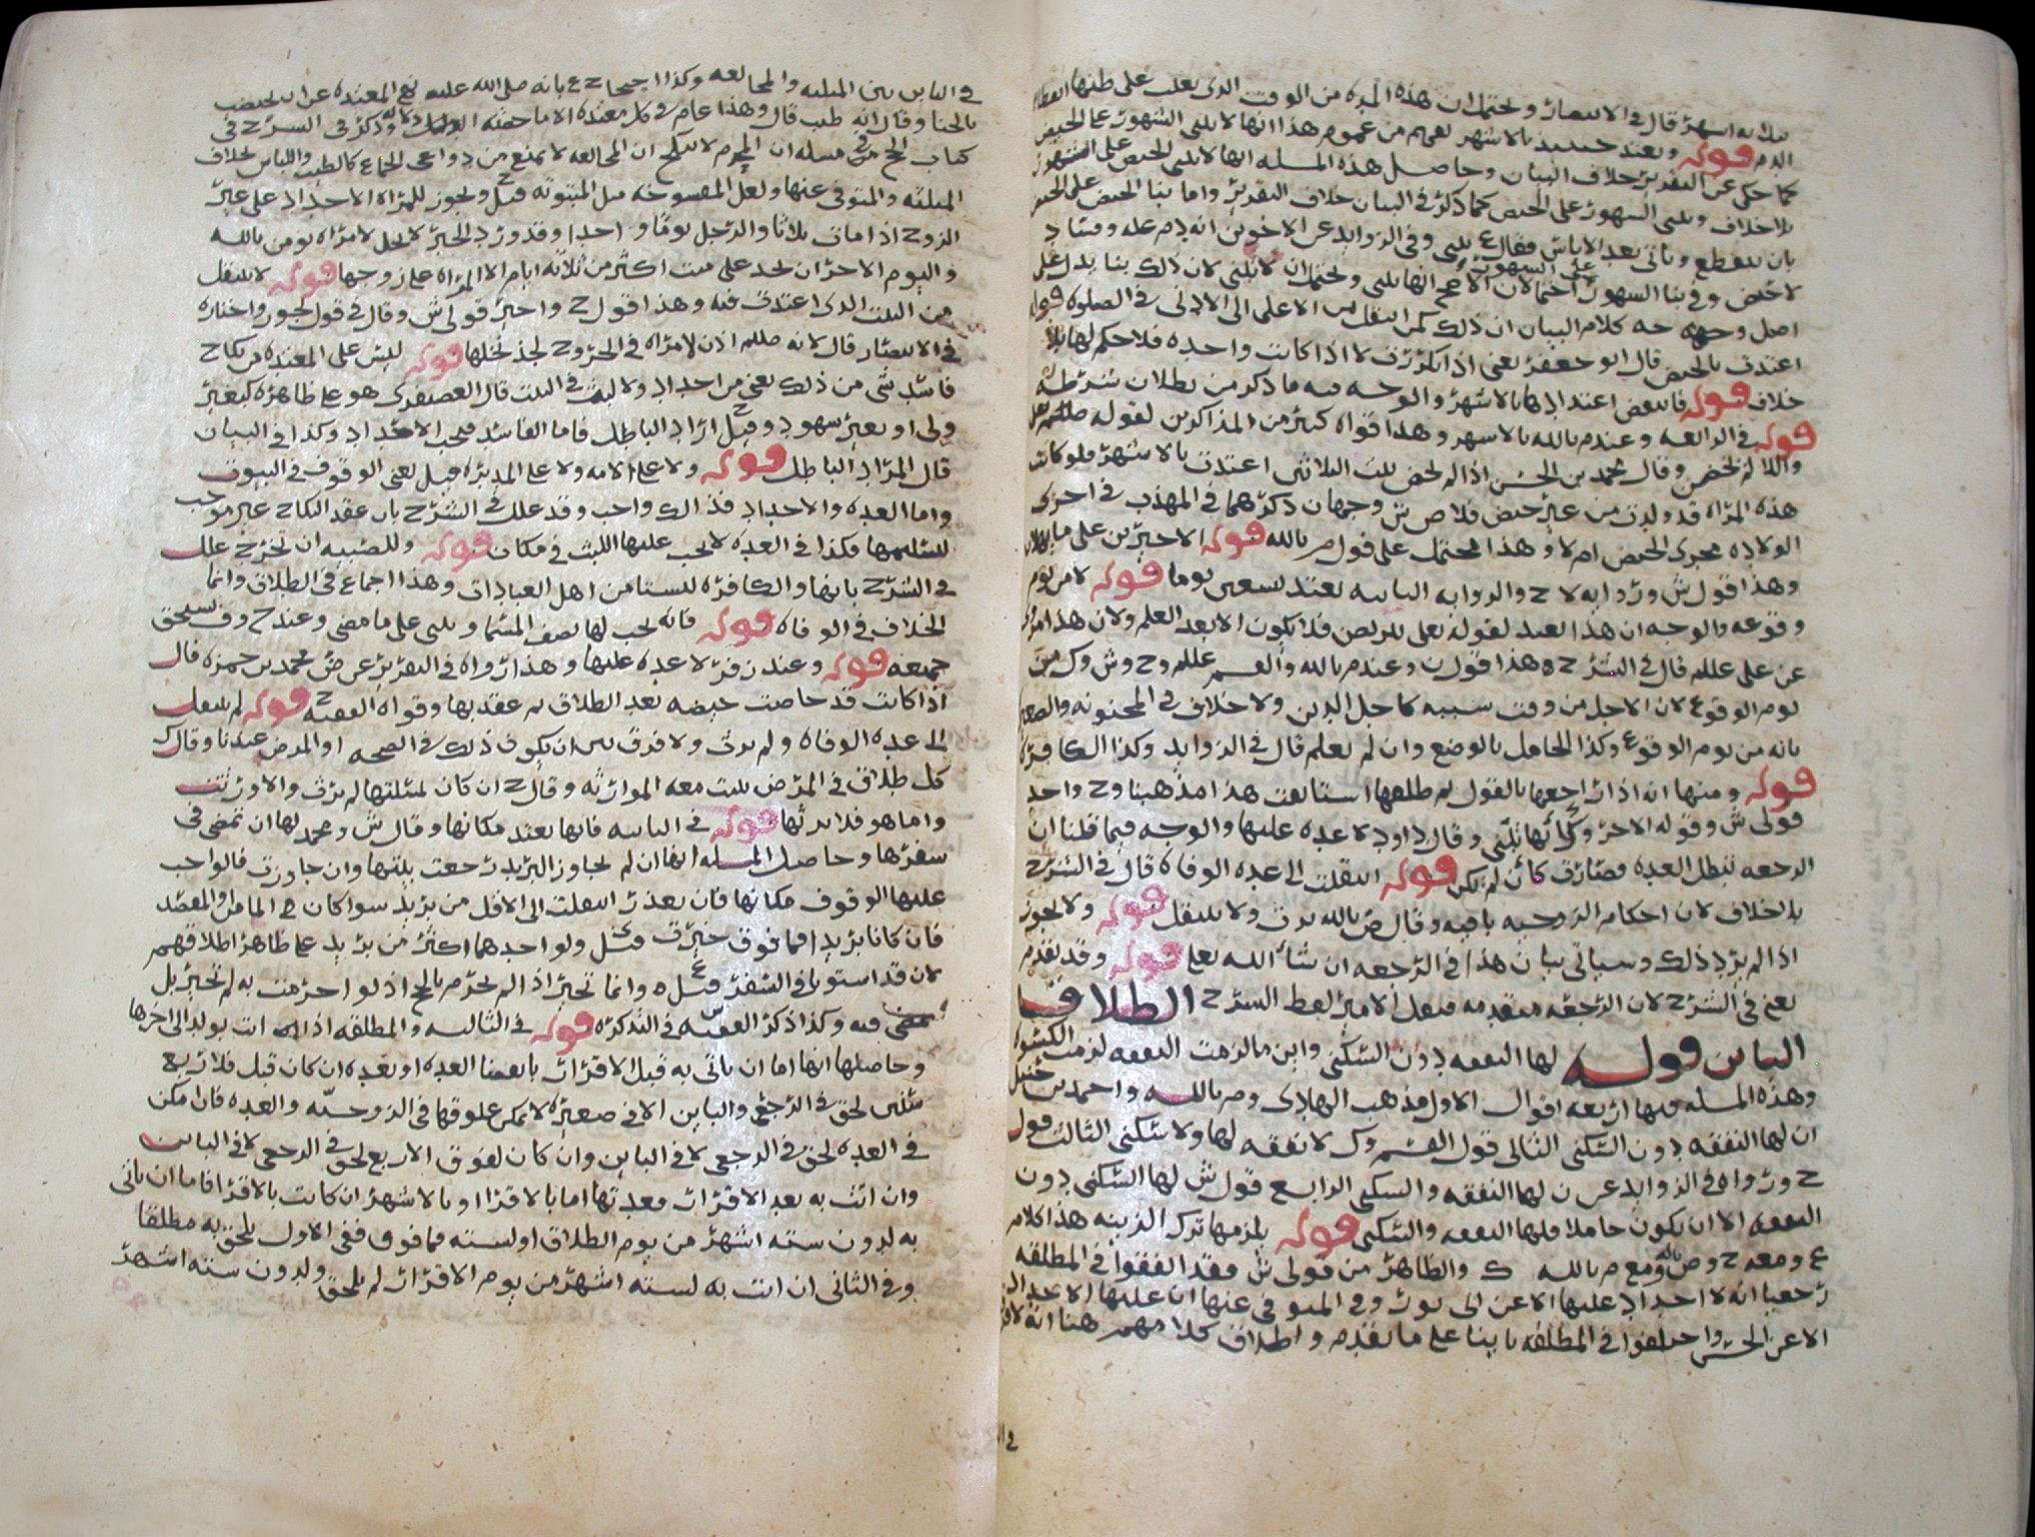 ثلاثة اشهر قال في الانتصار ويحتمل ان هذه المده من الوقت الذي يغلب على ظنها انقطاع
الدم قوله وتعتد حينئذ بالاشهر يفهم من عموم هذا انها لا تبني الشهور على الحيض
كما حكى عن التقرير خلاف البيان وحاصل هذه المسله انها لا تبني الحيض على الشهور
بلا خلاف وتبني الشهور على الحيض كما ذكر في البيان خلاف التقرير واما بنا الحيض على الحيض
بان ينقطع وياتي بعد الاياس فقال ع تبني وفي الزوايد عن الاخوين انه دم عله وفساد
لا حيض وفي بنا الشهور على الشهور احتمالان الاصح انها تبني ويحتمل ان لا تبني لان ذلك بنا بدل على
اصل وجه كلام البيان ان ذلك كمن انتقل من الاعلى الى الادنى في الصلوه قوله
اعتدت بالحيض قال ابو جعفر يعني اذا تكررت لا اذا كانت واحده فلا حكم لها بلا
خلاف قوله فانتقض اعتدادها بالاشهر والوجه فيه ما ذكر من بطلان شرطه
قوله في الرابعه وعند م بالله بالاشهر وهذا قواه كثير من المذاكرين لقوله
واللائي لم يحضن وقال محمد بن الحسن اذا لم تحض بنت الثلاثين اعتدت بالاشهر فلو كانت
هذه المراه قد ولدت من غير حيض فلاص ش وجهان ذكرهما في المهذب في اجرى
الولاده مجرى الحيض ام لا وهذا محتمل على قول م بالله قوله الاخيرين على ما
وهذا قول ش وروايه لا ح والروايه الثانيه تعتد تسعين يوما قوله لا من يوم
وقوعه والوجه ان هذا تعبد لقوله تعالى يتربصن فلا يكون الا بعد العلم ولان هذا
عن علي عليلم قال في الشرح وهذا قول ن وعند م بالله والقسم عليلم وح وش وك من
يوم الوقوع لان الاجل من وقت سببه كاجل الدين ولا خلاف في المجنونه والصغيره
بانه من يوم الوقوع وكذا الحامل بالوضع وان لم تعلم قال في الزوايد وكذا الكافره
قوله ومنها انه اذا راجعها بالقول ثم طلقها استانفت هذا مذهبنا وح واحد
قولي ش وقوله الاخر وك انها تبني وقال داود لا عده عليها والوجه فيما قلنا ان
الرجعه تبطل العده فصارت كان لم تكن قوله انتقلت الى عده الوفاه قال في الشرح
بلا خلاف لان احكام الزوجيه باقيه وقال ض بالله ترث ولا تنتقل قوله ولا يجوز
اذا لم يرد ذلك وسياتي بيان هذا في الرجعه ان شا الله تعلى قوله وقد تقدم
يعني في الشرح لان الرجعه متقدمه فنقل الامير لفظ الشرح الطلاق
الباين قوله لها النفقه دون السكنى واين ما لزمت النفقه لزمت الكسوه
وهذه المسله فيها اربعه اقوال الاول مذهب الهادي وم بالله واحمد بن حنبل
ان لها النفقه دون السكنى الثاني قول القسم وك لا نفقه لها ولا سكنى الثالث قول
ح ورواه في الزوايد عن ن لها النفقه والسكنى الرابع قول ش لها السكنى دون
النفقه الا ان تكون حاملا فلها النفقه والسكنى قوله يلزمها ترك الزينه هذا كلام
ع ومعه ح وص بالله ومع م بالله ك والظاهر من قولي ش فقد اتفقوا في المطلقه
رجعيا انه لا احداد عليها الا عن ابي ثور وفي المتوفى عنها ان عليها الاحداد
الا عن الحسن واختلفوا في المطلقه باينا على ما تقدم واطلاق كلامهم هنا انه لا فرق
في الباين بين المثلثه والمخالعه وكذا احتجاج ع بانه صلى الله عليه نهى المعتده عن ان تختضب
بالحنا وقال انه طيب قال وهذا عام في كل معتده الا ما خصته الدلاله وذكر في الشرح في
كتاب الحج في مسله ان المحرم لا ينكح ان المخالعه لا تمنع من دواعي الجماع كالطيب واللباس بخلاف
المثلثه والمتوفى عنها ولعل المفسوخه مثل المبتوته قيل ح ويجوز للمراه الاحداد على غير
الزوج اذا مات ثلاثا والرجل يوما واحدا وقد ورد الخبر لا يحل لامراه تومن بالله
واليوم الاخر ان تحد على ميت اكثر من ثلاثه ايام الا المراه على زوجها قوله لا تنتقل
من البيت الذي اعتدت فيه وهذا قول ح واخير قولي ش وقال في قول يجوز واختاره
في الانتصار قال لانه صللم اذن لامراه في الخروج لجذ نخلها قوله ليس على المعتده من نكاح
فاسد شي من ذلك يعني من احداد ولا لبث في البيت قال العصيفري هو على ظاهره كبغير
ولي او بغير شهود وقيل ح اراد الباطل فاما الفاسد فيجب الاحداد وكذا في البيان
قال المراد الباطل قوله ولا على الامه ولا على المدبره قيل يعني الوقوف في البيوت
واما العده والاحداد فذلك واجب وقد علل في الشرح بان عقد النكاح غير موجب
لتسليمها فكذا في العده لا يجب عليها اللبث في مكان قوله وللصبيه ان تخرج علل
في الشرح بانها والكافره ليستا من اهل العبادات وهذا اجماع في الطلاق وانما
الخلاف في الوفاه قوله فانه يجب لها نصف المسما وتبني على ما مضى وعند ح وف تستحق
جميعه قوله وعند زفر لا عده عليها وهذا رواه في التقرير عن ض محمد بن حمزه قال
اذا كانت قد حاضت حيضه بعد الطلاق ثم عقد بها وقواه الفقيه ح قوله لم تنتقل
الى عده الوفاه ولم ترث ولا فرق بين ان يكون ذلك في الصحه او المرض عندنا وقال ك
كل طلاق في المرض يثبت معه الموارثه وقال ح ان كان لمسلتها لم ترث والا ورثت
واما هو فلا يرثها قوله في الثانيه فانها تعتد مكانها وقال ش ومحمد لها ان تمضي في
سفرها وحاصل المسله انها ان لم تجاوز البريد رجعت بيتها وان جاوزت فالواجب
عليها الوقوف مكانها فان تعذر انتقلت الى الاقل من بريد سوا كان في المامن او المقصد
فان كانا بريدا فما فوق خيرت قيل ولو احدهما اكثر من بريد على ظاهر اطلاقهم
لان قد استويا في السفر قيل ع وانما تخير اذا لم تحرم بالحج اذ لو احرمت به لم تخير بل
تمضي فيه وكذا ذكر الفقيه س في التذكره قوله في الثالثه والمطلقه اذا اتت بولد الى اخرها
وحاصلها انها اما ان تاتي به قبل الاقرار بانقضا العده او بعده ان كان قبل فلاربع
سنين لحق في الرجعي والباين الا في صغيره لا يمكن علوقها في الزوجيه والعده فان امكن
في العده لحق في الرجعي لا في الباين وان كان لفوق الاربع لحق في الرجعي لا في الباين
وان اتت به بعد الاقرار فعدتها اما بالاقرا او بالاشهر ان كانت بالاقرا فاما ان تاتي
به لدون سته اشهر من يوم الطلاق او لسته فما فوق ففي الاول يلحق به مطلقا
وفي الثاني ان اتت به لسته اشهر من يوم الاقرار لم يلحق ولدون سته اشهر